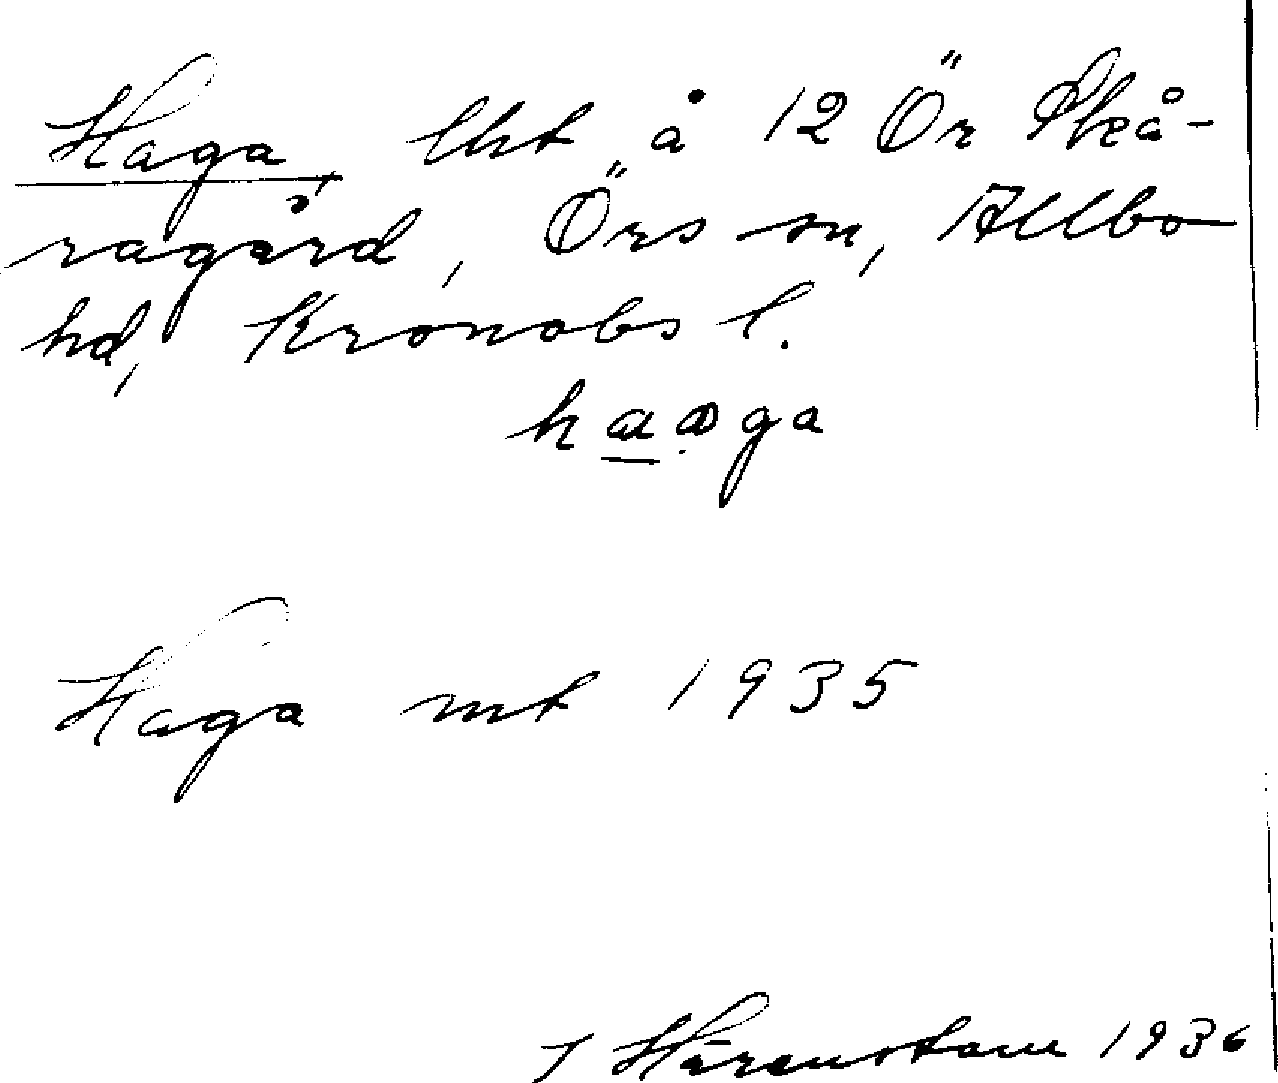 Haga, lht å 12 Ör Skå-
ragård, Örs sn, Allbo
hd, Kronobs l.
haaga
Haga mt 1935
J Härenstam 1936